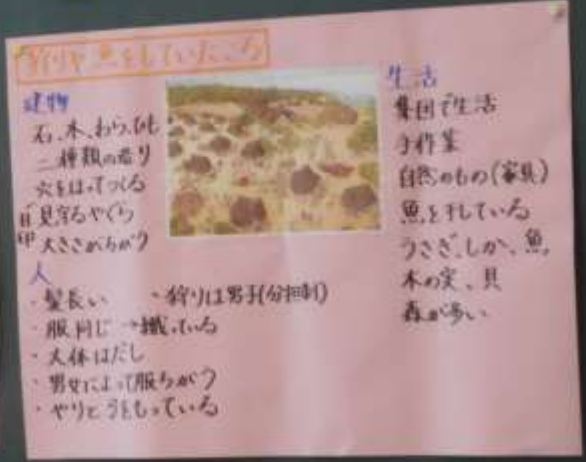 狩りや魚をしていたころ
建物
石、木、わら、ひも
二種類の造り
穴をほってつくる
見守るやぐら
目印
大きさがちがう
人
・髪長い
・狩りは男子(分担制)
・服同じ→織っている
・大体はだし
・男女によって服ちがう
・やりとうをもっている
生活
集団で生活
手作業
自然のもの(家具)
魚を干している
うさぎ、しか、魚、
木の実、貝
森が多い